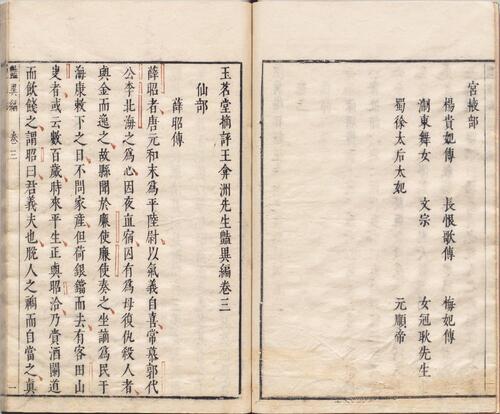 宮掖部
楊貴妃傳　長恨歌傳　梅妃傳
淛東舞女　文宗　女冠耿先生
蜀徐太后太妃　元順帝
玉茗堂摘評王弇洲先生豔異編卷三
仙部
薛昭傳
薛昭者唐元和末為平陸尉以氣義自喜常慕郭代
公李北海之為心因夜直宿囚有為母復仇殺人者
與金而逸之故縣聞於廉使廉使奏之坐謫為民于
海康敕下之日不問家產但荷銀鐺而去有客田山
叟者或云數百歲時來平生正與昭洽乃賫酒闌道
而飲餞之謂昭曰君義夫也脫人之禍而自當之真
豔異編　卷三　一